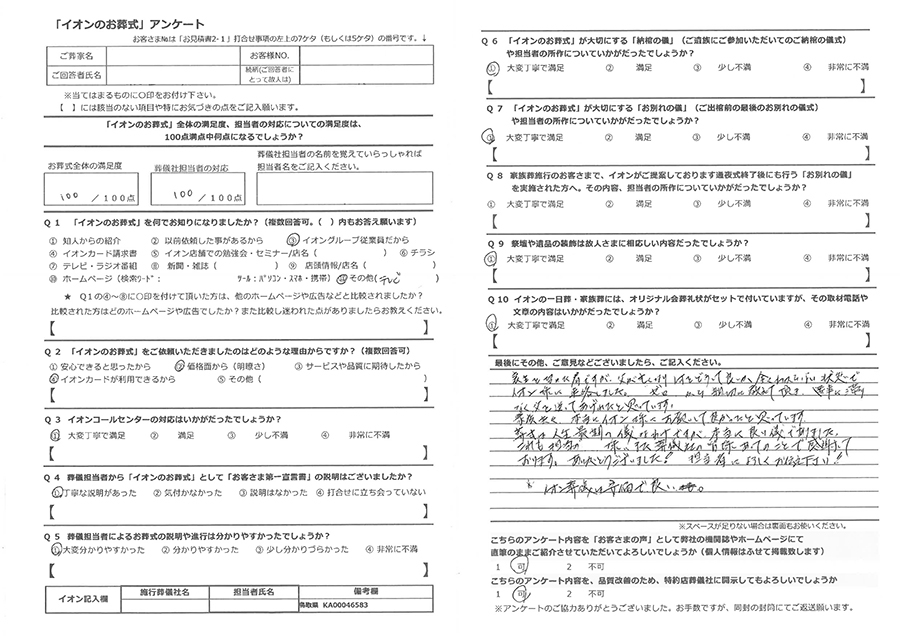 「イオンのお葬式」アンケート
お客さま№は「お見積書2-1」打合せ事項の左上の7ケタ（もしくは5ケタ）の番号です。↓
ご葬家名
お客様NO.
ご回答者氏名
続柄(ご回答者にとって故人は)
※当てはまるものに○印をお付け下さい。
【　】には該当のない項目や特にお気づきの点をご記入願います。
「イオンのお葬式」全体の満足度、担当者の対応についての満足度は、
100点満点中何点になるでしょうか？
お葬式全体の満足度
葬儀社担当者の対応
葬儀社担当者の名前を覚えていらっしゃれば
担当者名をご記入ください。
100 /100点
100 /100点
Q 1 「イオンのお葬式」を何でお知りになりましたか？（複数回答可。（　）内もお答え願います）
① 知人からの紹介 ② 以前依頼した事があるから ③ イオングループ従業員だから
④ イオンカード請求書 ⑤ イオン店舗での勉強会・セミナー/店名（ ） ⑥ チラシ
⑦ テレビ・ラジオ番組 ⑧ 新聞・雑誌（ ） ⑨ 店頭情報/店名（ ）
⑩ ホームページ（検索ﾜｰﾄﾞ： ﾂｰﾙ：ﾊﾟｿｺﾝ・ｽﾏﾎ・携帯） ⑪ その他(テレビ )
★ Q1の④～⑧に○印を付けて頂いた方は、他のホームページや広告などと比較されましたか？
比較された方はどのホームページや広告でしたか？また比較し迷われた点がありましたらお教えください。
【 】
Q 2 「イオンのお葬式」をご依頼いただきましたのはどのような理由からですか？（複数回答可）
① 安心できると思ったから ② 価格面から（明瞭さ） ③ サービスや品質に期待したから
④ イオンカードが利用できるから ⑤ その他（ ）
【 】
Q 3 イオンコールセンターの対応はいかがだったでしょうか？
① 大変丁寧で満足 ② 満足 ③ 少し不満 ④ 非常に不満
【 】
Q 4 葬儀担当者から「イオンのお葬式」として「お客さま第一宣言書」の説明はございましたか？
① 丁寧な説明があった ② 気付かなかった ③ 説明はなかった ④ 打合せに立ち会っていない
【 】
Q 5 葬儀担当者によるお葬式の説明や進行は分かりやすかったでしょうか？
① 大変分かりやすかった ② 分かりやすかった ③ 少し分かりづらかった ④ 非常に不満
【 】
イオン記入欄
施行葬儀社名 担当者氏名 備考欄
鳥取県 KA00046583
Q 6 「イオンのお葬式」が大切にする「納棺の儀」（ご遺族にご参加いただいてのご納棺の儀式）
や担当者の所作についていかがだったでしょうか？
① 大変丁寧で満足 ② 満足 ③ 少し不満 ④ 非常に不満
【 】
Q 7 「イオンのお葬式」が大切にする「お別れの儀」（ご出棺前の最後のお別れの儀式）
や担当者の所作についていかがだったでしょうか？
① 大変丁寧で満足 ② 満足 ③ 少し不満 ④ 非常に不満
【 】
Q 8 家族葬施行のお客さまで、イオンがご提案しております通夜式終了後にも行う「お別れの儀」
を実施された方へ。その内容、担当者の所作についていかがだったでしょうか？
① 大変丁寧で満足 ② 満足 ③ 少し不満 ④ 非常に不満
【 】
Q 9 祭壇や遺品の装飾は故人さまに相応しい内容だったでしょうか？
① 大変丁寧で満足 ② 満足 ③ 少し不満 ④ 非常に不満
【 】
Q 10 イオンの一日葬・家族葬には、オリジナル会葬礼状がセットで付いていますが、その取材電話や
文章の内容はいかがだったでしょうか？
① 大変丁寧で満足 ② 満足 ③ 少し不満 ④ 非常に不満
【 】
最後にその他、ご意見などございましたら、ご記入ください。
本当にイオン様にお願いして良かったと思っています。
ありがとうございました！ 担当者によろしくお伝え下さい！！
※スペースが足りない場合は裏面もお使いください。
こちらのアンケート内容を「お客さまの声」として弊社の機関誌やホームページにて
直筆のままご紹介させていただいてよろしいでしょうか（個人情報はふせて掲載致します）
1 可 2 不可
こちらのアンケート内容を、品質改善のため、特約店葬儀社に開示してもよろしいでしょうか
1 可 2 不可
※アンケートのご協力ありがとうございました。お手数ですが、同封の封筒にてご返送願います。